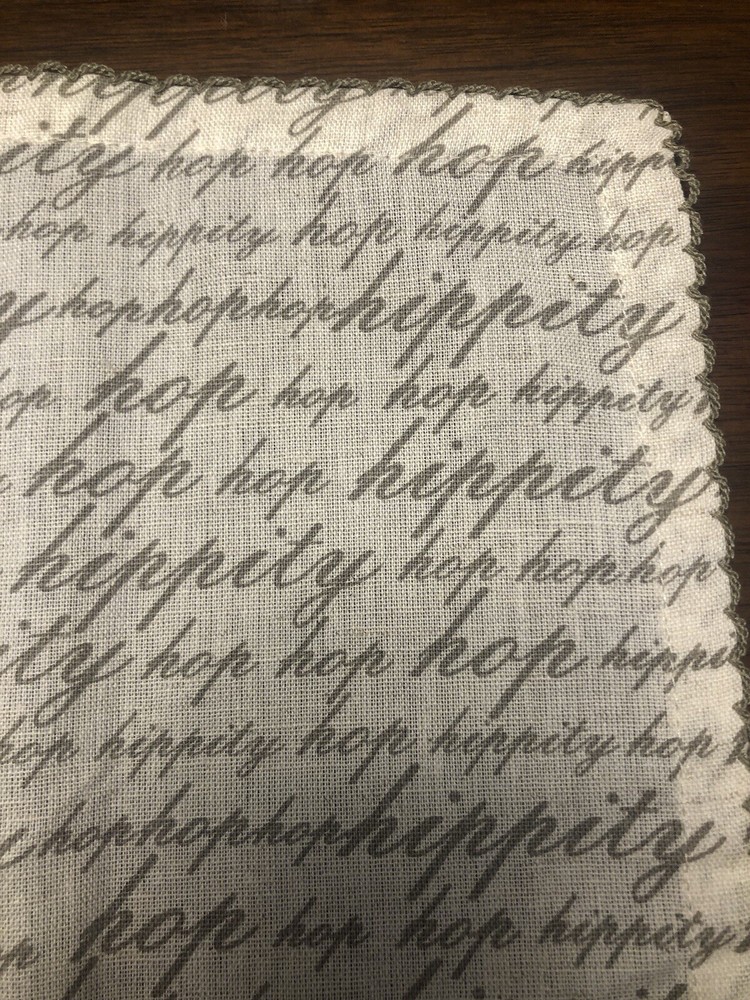 hippity
ity hop hop hop hippi
hop hippity hop hippity hop
y hophophophippity
hop hop hop hop hippity
hop hop hippity
hippity hop hophop
ity hop hop hop hippi
hop hippity hop hippity hop
hophophophippity
hop hop hop hippity